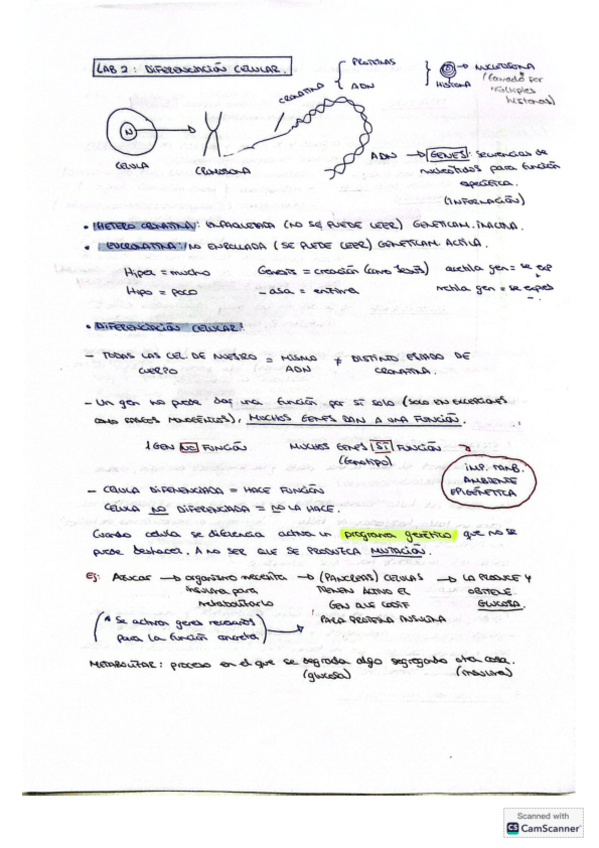 LAB 2: DIFERENCIACIÓN CELULAR.
PROTEINAS
ADN
CROMATINA
HISTONA
NUCLEOSOMA
(formado por
múltiples
histonas)
N
CELULA
CROMOSOMA
ADN → GENES: secuencias de
nucleótidos para función
específica.
(INFORMACIÓN)
• HETERO CROMATINA: EMPAQUETADA (NO SE PUEDE LEER) GENETICAM. INACTIVA.
• EUCROMATINA: NO ENROLLADA (SE PUEDE LEER) GENETICAM. ACTIVA.
Hiper = mucho Genesis = creación (como Jesús) acetila gen = se exp
Hipo = poco - asa = enzima metila gen = se
• DIFERENCIACIÓN CELULAR:
- TODAS LAS CEL. DE NUESTRO = MISMO ≠ DISTINTO ESTADO DE
CUERPO ADN CROMATINA.
- Un gen no puede dar una función por sí solo (solo en excepciones
como rasgos monogénicos), MUCHOS GENES DAN A UNA FUNCIÓN.
1 GEN NO FUNCIÓN MUCHOS GENES SÍ FUNCIÓN
(Genotipo)
IMP. TAMB.
AMBIENTE
EPIGÉNETICA
- CELULA DIFERENCIADA = HACE FUNCIÓN
CELULA NO DIFERENCIADA = NO LA HACE.
Cuando celula se diferencia activa un programa genético que no se
puede deshacer. A NO SER QUE SE PRODUZCA MUTACIÓN.
Ej: AZUCAR → organismo necesita → (PANCREAS) CELULAS → LA PRODUCE Y
insulina para TIENEN ACTIVO EL OBTIENE
metabolizarlo GEN QUE CODIF GLUCOSA.
(* Se activan genes necesarios → PARA PROTEINA INSULINA
para la función concreta)
METABOLIZAR: proceso en el que se degrada algo segregando otra cosa.
(glucosa) (insulina)
Scanned with
CS CamScanner